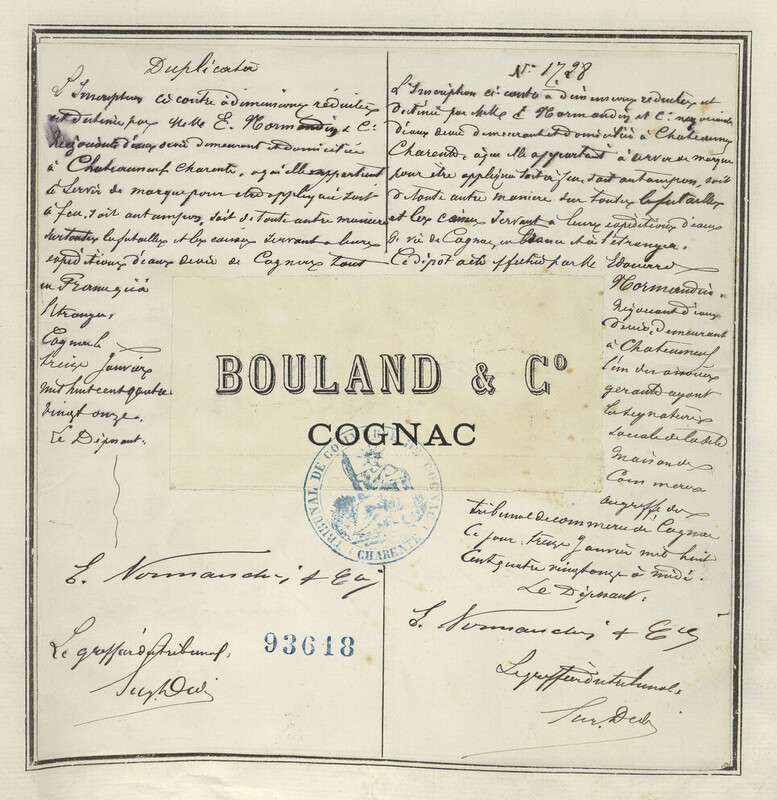 Duplicata
L'Inscription ci contre à dimensions réduites
est destinée par Mrs E. Normandin & Cie
Négociants d'eaux de vie demeurant et domiciliés
à Chateauneuf Charente, à qui elle appartient
à Servir de marque pour etre appliquée soit
à feu, soit au tampon, soit de toute autre manière
sur toutes les futailles et les caisses servant à leurs
expéditions d'eaux de vie de Cognac tant
en France qu'à
l'étranger.
Cognac le
treize Janvier
mil huit cent quatre
vingt onze.
Le Déposant:
E. Normandin & Cie
Le greffier du tribunal,
93618
No 1728
L'Inscription ci contre à dimensions réduites est
destinée par Mrs E. Normandin et Cie négociants
d'eaux de vie demeurant et domiciliés à Chateauneuf
Charente, à qui elle appartient à servir de marque
pour être appliquée soit à feu, soit au tampon, soit
de toute autre manière sur toutes les futailles
et les caisses servant à leurs expéditions d'eaux
de vie de Cognac, en France et à l'étranger.
Ce dépôt a été effectué par Mr Edouard
Normandin
Négociant d'eaux
de vie, demeurant
à Chateauneuf
l'un des associés
gérants ayant
la signature
sociale de la dite
Maison de
Commerce
au greffe du
tribunal de commerce de Cognac
Ce jour, treize Janvier mil huit
Cent quatre vingt onze à midi.
Le Déposant:
E. Normandin & Cie
Le greffier du tribunal
BOULAND & Co
COGNAC
TRIBUNAL DE COMMERCE DE COGNAC
(CHARENTE)